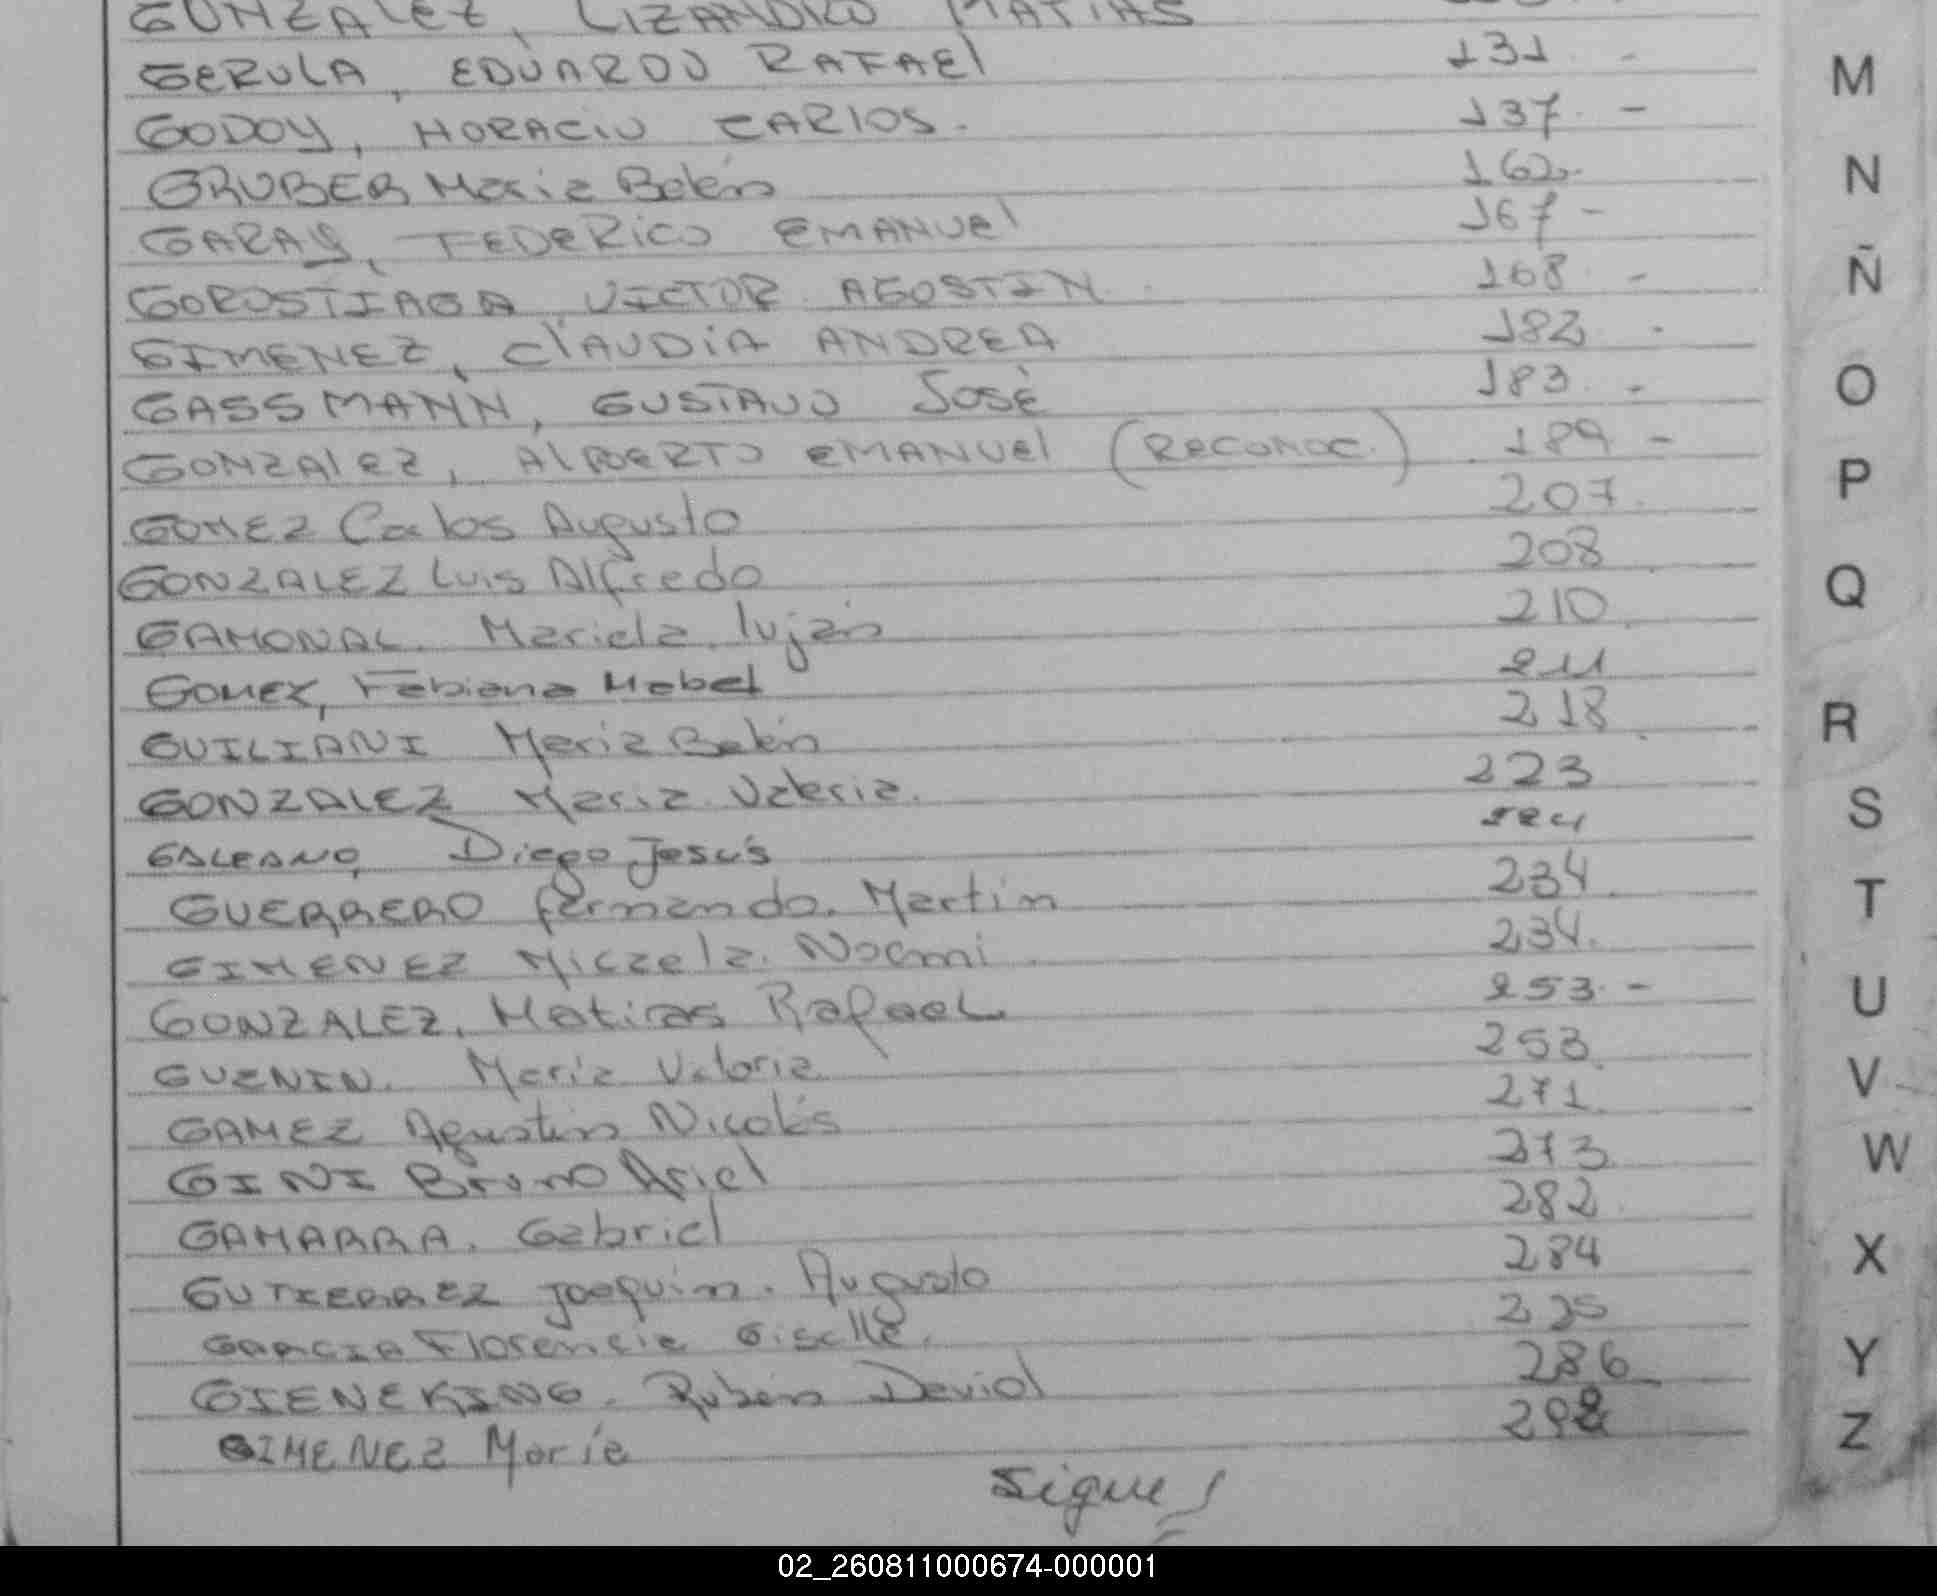 GONZALEZ, LIZANDRO MATIAS
GERULA, EDUARDO RAFAEL 131 -
GODOY, HORACIO CARLOS. 137. -
GRUBER María Belén 162.
GARAY, FEDERICO EMANUEL 167 -
GOROSTIAGA VICTOR AGOSTIN. 168 -
GIMENEZ, CLAUDIA ANDREA 182 -
GASSMANN, GUSTAVO JOSÉ 183. -
GONZALEZ, ALBERTO EMANUEL (RECONOC.) 189 -
GOMEZ Carlos Augusto 207.
GONZALEZ Luis Alfredo 208
GAMONAL. Mariela luján 210
GOMEZ, Fabiana Mabel 211
GUILIANI María Belén 218
GONZALEZ María Valeria. 223
GALEANO, Diego Jesús 224
GUERRERO fernando. Martín 234
GIMENEZ Micaela. Noemí 234.
GONZALEZ, Matias Rafael 253. -
GUENIN. María Valoria 253
GAMEZ Agustín Nicolás 271
GINI Bruno Ariel 273
GAMARRA. Gabriel 282
GUTIERREZ Joaquín. Augusto 284
GARCIA Florencia Giselle.
GIENEKING. Rubén David 286
GIMENEZ María 298
Sigue /
M
N
Ñ
O
P
Q
R
S
T
U
V
W
X
Y
Z
02_260811000674-000001